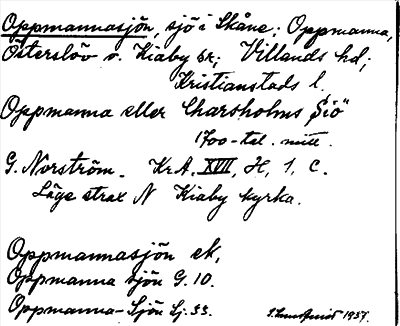 Oppmannasjön, sjö i Skåne; Oppmanna,
Österslöv o. Kiaby sr; Villands hd;
Kristianstads l.
Oppmanna eller Charsholms Siö"
1700-tal. mitt.
G. Norström. Kr.A. XVII, H, 1, c.
Läge strax N Kiaby kyrka.
Oppmannasjön ek,
Oppmanna sjön G. 10.
Oppmanna-Sjön Lj. 33.
1937.